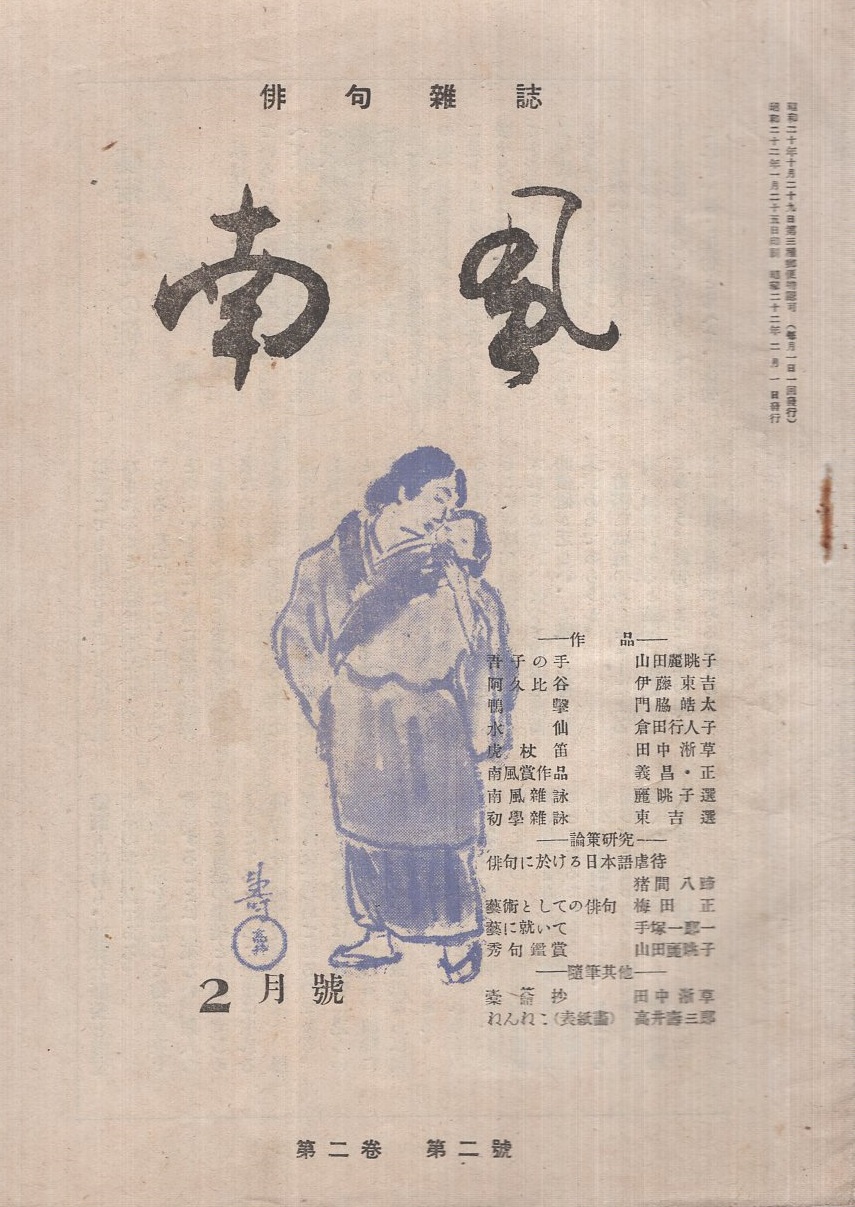 俳句雜誌
南風
昭和二十年十月二十九日第三種郵便物認可 (每月一日一回發行)
昭和二十二年一月二十五日印刷 昭和二十二年二月一日發行
——作 品——
吾子の手 山田麗眺子
阿久比谷 伊藤東吉
鴨擊 門脇皓太
水仙 倉田行人子
虎杖笛 田中淅草
南風賞作品 義昌・正
南風雜詠 麗眺子選
初學雜詠 東吉選
——論策研究——
俳句に於ける日本語虐待
猪間八蹄
藝術としての俳句 梅田正
藝に就いて 手塚一郎一
秀句鑑賞 山田麗眺子
——隨筆其他——
抄 田中淅草
ねんねこ(表紙畫) 高井壽三郎
壽
2月號
第二卷 第二號